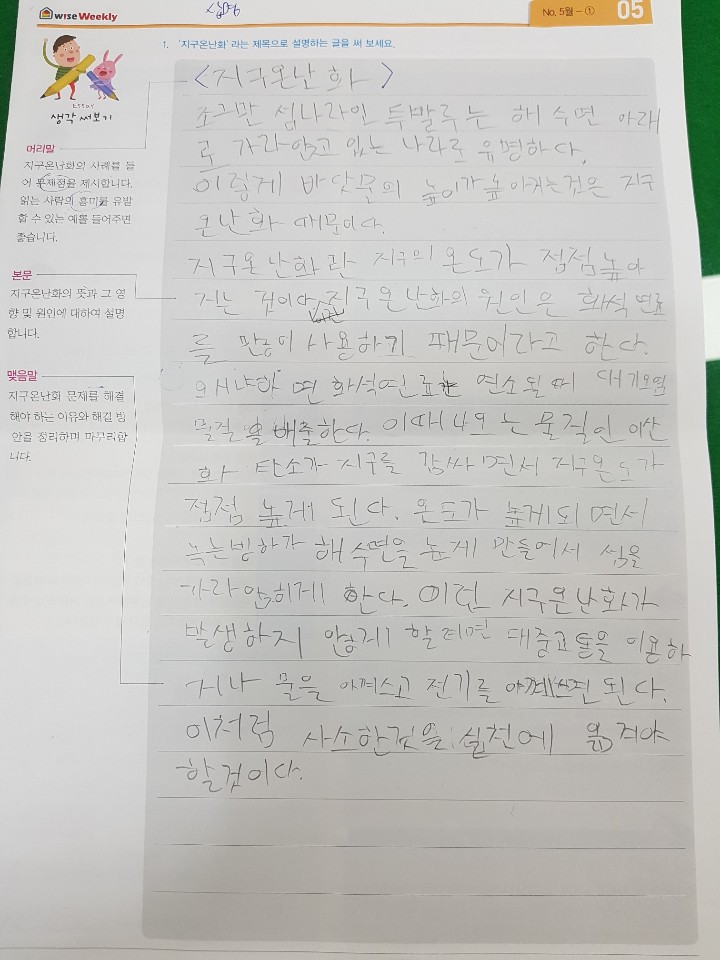 wiseWeekly
설명
No. 5월 - ①
05
1. '지구온난화' 라는 제목으로 설명하는 글을 써 보세요.
ESSAY
생각 써보기
머리말
지구온난화의 사례를 들
어 문제점을 제시합니다.
읽는 사람의 흥미를 유발
할 수 있는 예를 들어주면
좋습니다.
본문
지구온난화의 뜻과 그 영
향 및 원인에 대하여 설명
합니다.
맺음말
지구온난화 문제를 해결
해야 하는 이유와 해결 방
안을 정리하며 마무리합
니다.
<지구온난화>
조그만 섬나라인 투발루는 해수면 아래
로 가라앉고 있는 나라로 유명하다.
이렇게 바닷물의 높이가 높아지는것은 지구
온난화 때문이다.
지구온난화란 지구의 온도가 점점 높아
지는 것이다. 지구온난화의 원인은 화석 연료
를 많이 사용하기 때문이라고 한다.
왜냐하면 화석연료는 연소될 때 대기오염
물질을 배출한다. 이때 나오는 물질인 이산
화 탄소가 지구를 감싸면서 지구온도가
점점 높게 된다. 온도가 높게되면서
녹는빙하가 해수면을 높게 만들어서 섬을
가라앉히게 한다. 이런 지구온난화가
발생하지 않게 할려면 대중교통을 이용하
거나 물을 아껴쓰고 전기를 아껴쓰면 된다.
이처럼 사소한것을 실천에 옮겨야
할것이다.